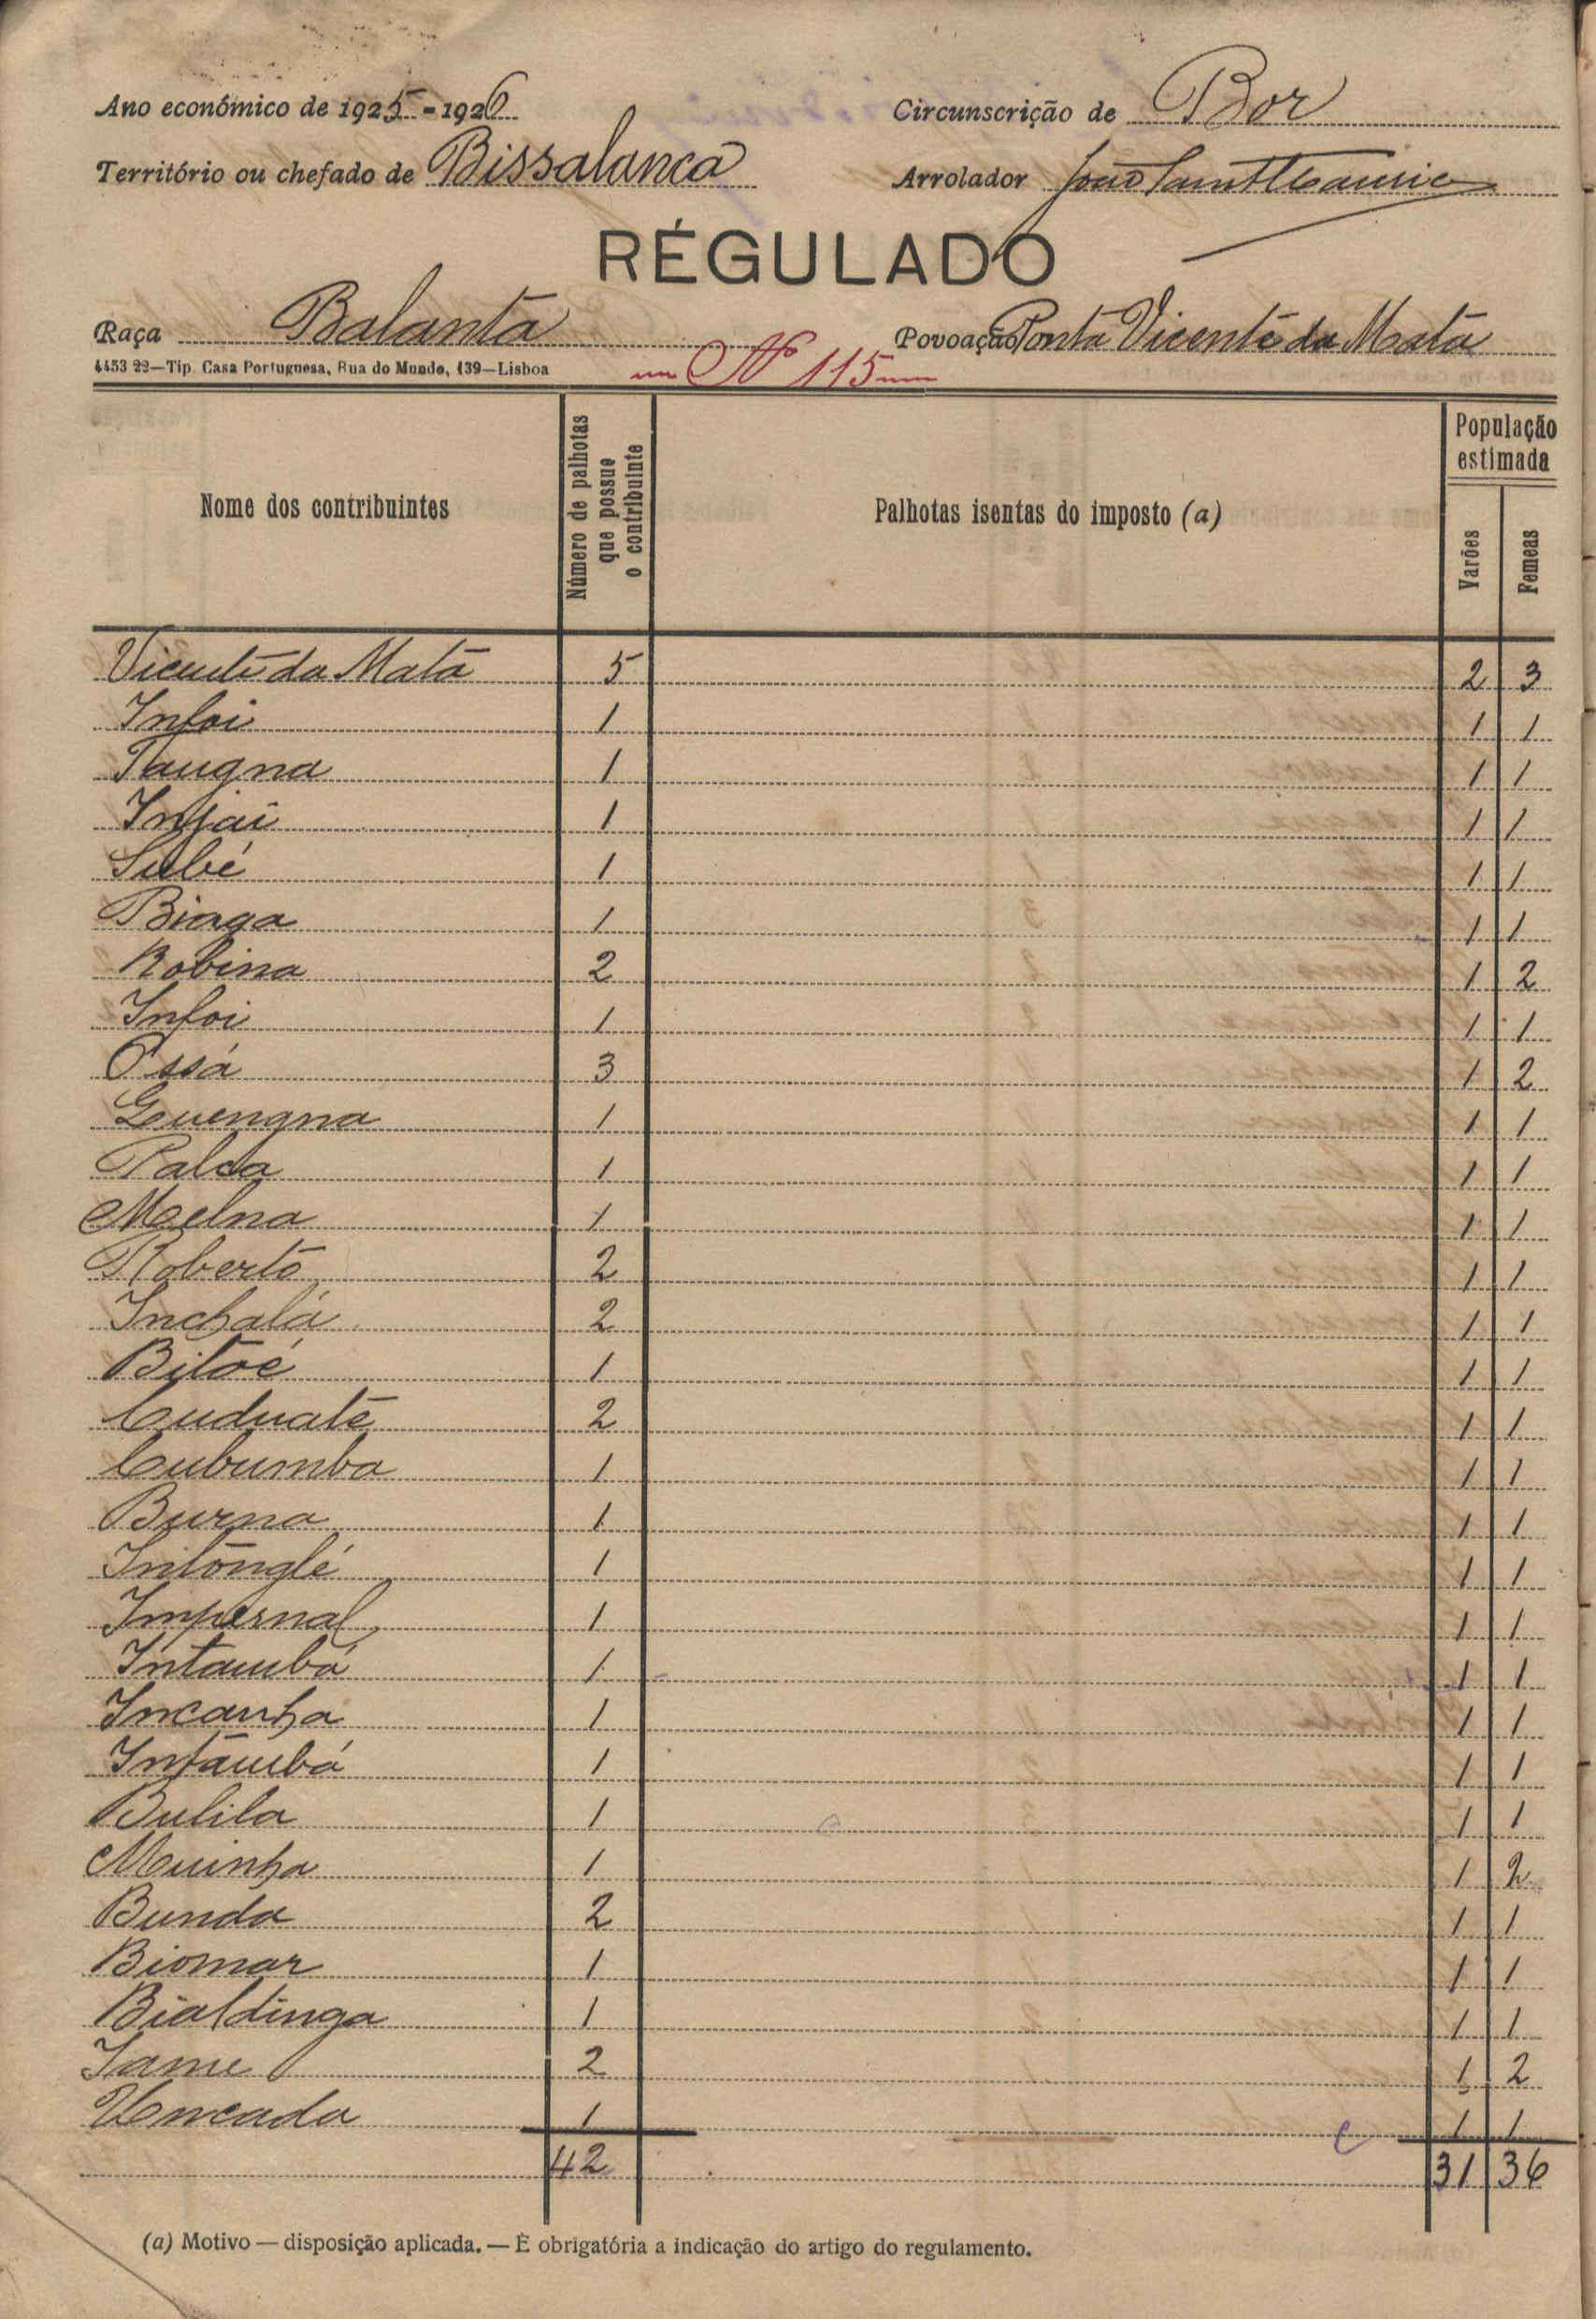 Ano económico de 1925-1926 Circunscrição de Bor
Território ou chefado de Bissalanca Arrolador João
RÉGULADO
Raça Balanta Povoação Ponta Vicente da Mata
4453 22—Tip. Casa Portuguesa, Rua do Mundo, 139—Lisboa Nº 115
Nome dos contribuintes
Número de palhotas que possue o contribuinte
Palhotas isentas do imposto (a)
População estimada
Varões Femeas
Vicente da Mata 5 2 3
Infoi 1 1 1
Taugna 1 1 1
Injai 1 1 1
Subé 1 1 1
Biaga 1 1 1
Robina 2 1 2
Infoi 1 1 1
Ossá 3 1 2
Guengna 1 1 1
Palca 1 1 1
Melna 1 1 1
Roberto 2 1 1
Inchalá 2 1 1
Bitoé 1 1 1
Cuduaté 2 1 1
Cubumba 1 1 1
Burna 1 1 1
Intonglé 1 1 1
Impernal 1 1 1
Intambá 1 1 1
Incanha 1 1 1
Intambá 1 1 1
Bulila 1 1 1
Muinha 1 1 2
Bunda 2 1 1
Biomar 1 1 1
Bialdinga 1 1 1
Iame 2 1 2
1 1 1
42 31 36
(a) Motivo — disposição aplicada. — É obrigatória a indicação do artigo do regulamento.